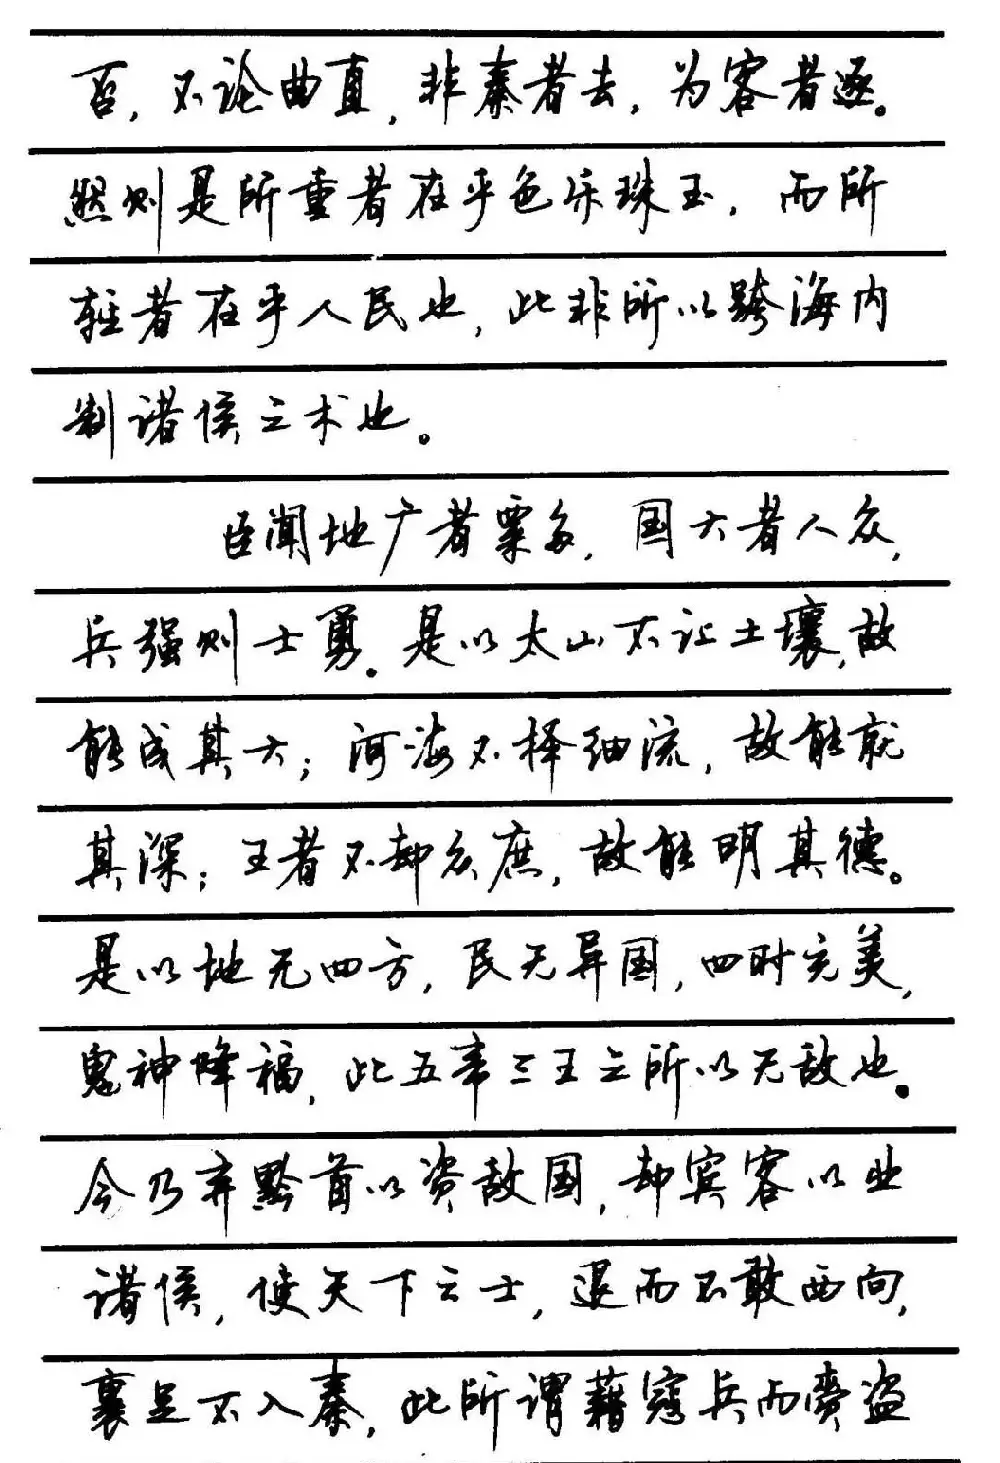 否，不论曲直，非秦者去，为客者逐。
然则是所重者在乎色乐珠玉，而所
轻者在乎人民也，此非所以跨海内
制诸侯之术也。
臣闻地广者粟多，国大者人众，
兵强则士勇。是以太山不让土壤，故
能成其大；河海不择细流，故能就
其深；王者不却众庶，故能明其德。
是以地无四方，民无异国，四时充美，
鬼神降福，此五帝三王之所以无敌也。
今乃弃黔首以资敌国，却宾客以业
诸侯，使天下之士，退而不敢西向，
裹足不入秦，此所谓藉寇兵而赍盗